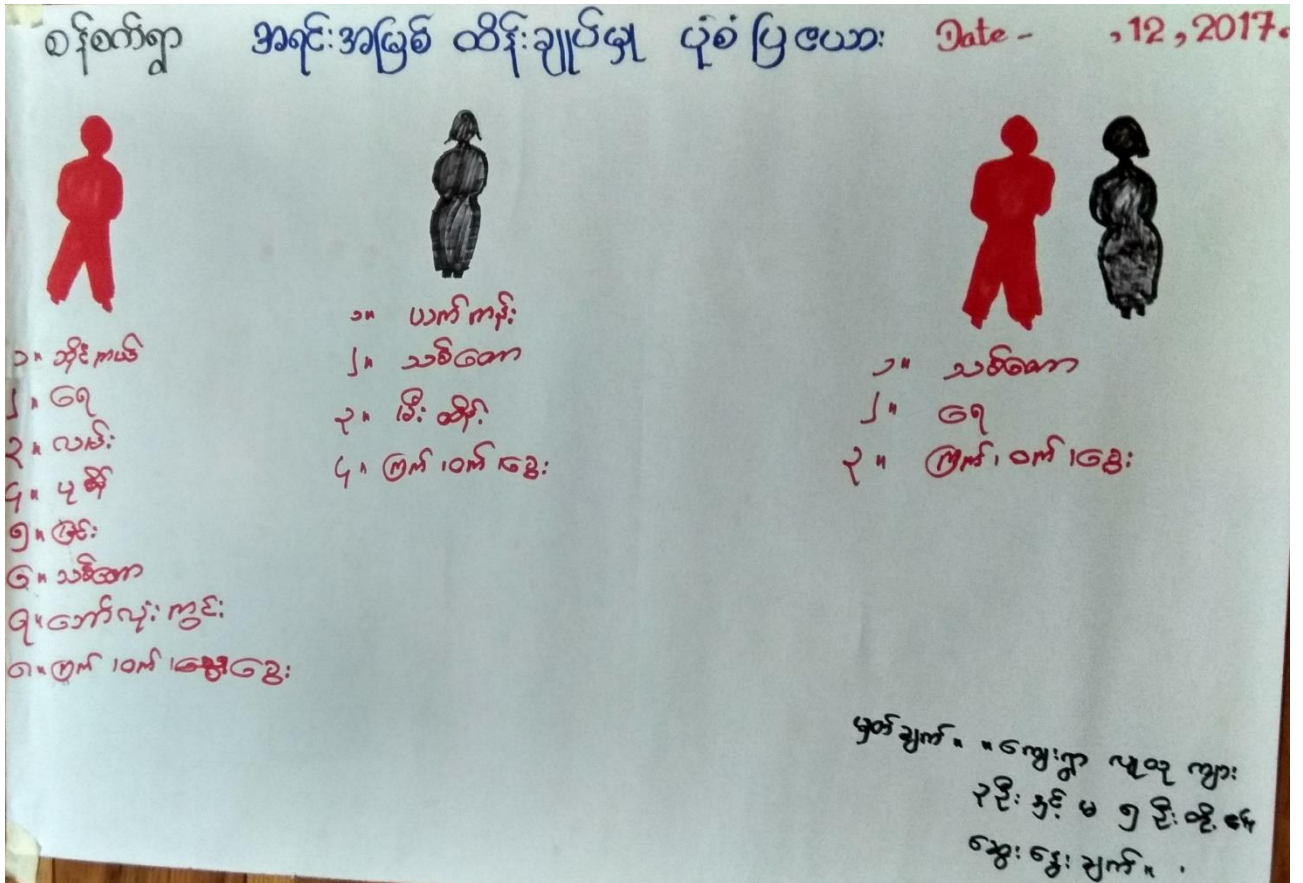 စန်စက်ရွာ အရင်းအမြစ် ထိန်းချုပ်မှု ပုံစံပြဇယား Date - ,12,2017.
၁။ ဆိုင်ကယ်
၂။ ရေ
၃။ လမ်း
၄။
၅။ ခြင်း
၆။ သစ်တော
၇။ ဘော်လုံးကွင်း
၈။ ကြက်၊ဝက်၊ခွေး
၁။ ယက်ကန်း
၂။ သစ်တော
၃။ မီးထိန်
၄။ ကြက်၊ဝက်၊ခွေး
၁။ သစ်တော
၂။ ရေ
၃။ ကြက်၊ဝက်၊ခွေး
မှတ်ချက်။ ။ကျေးရွာ လူထု ကျား
၃ဦး နှင့် မ ၅ ဦးတို့၏
ဆွေးနွေးချက်။